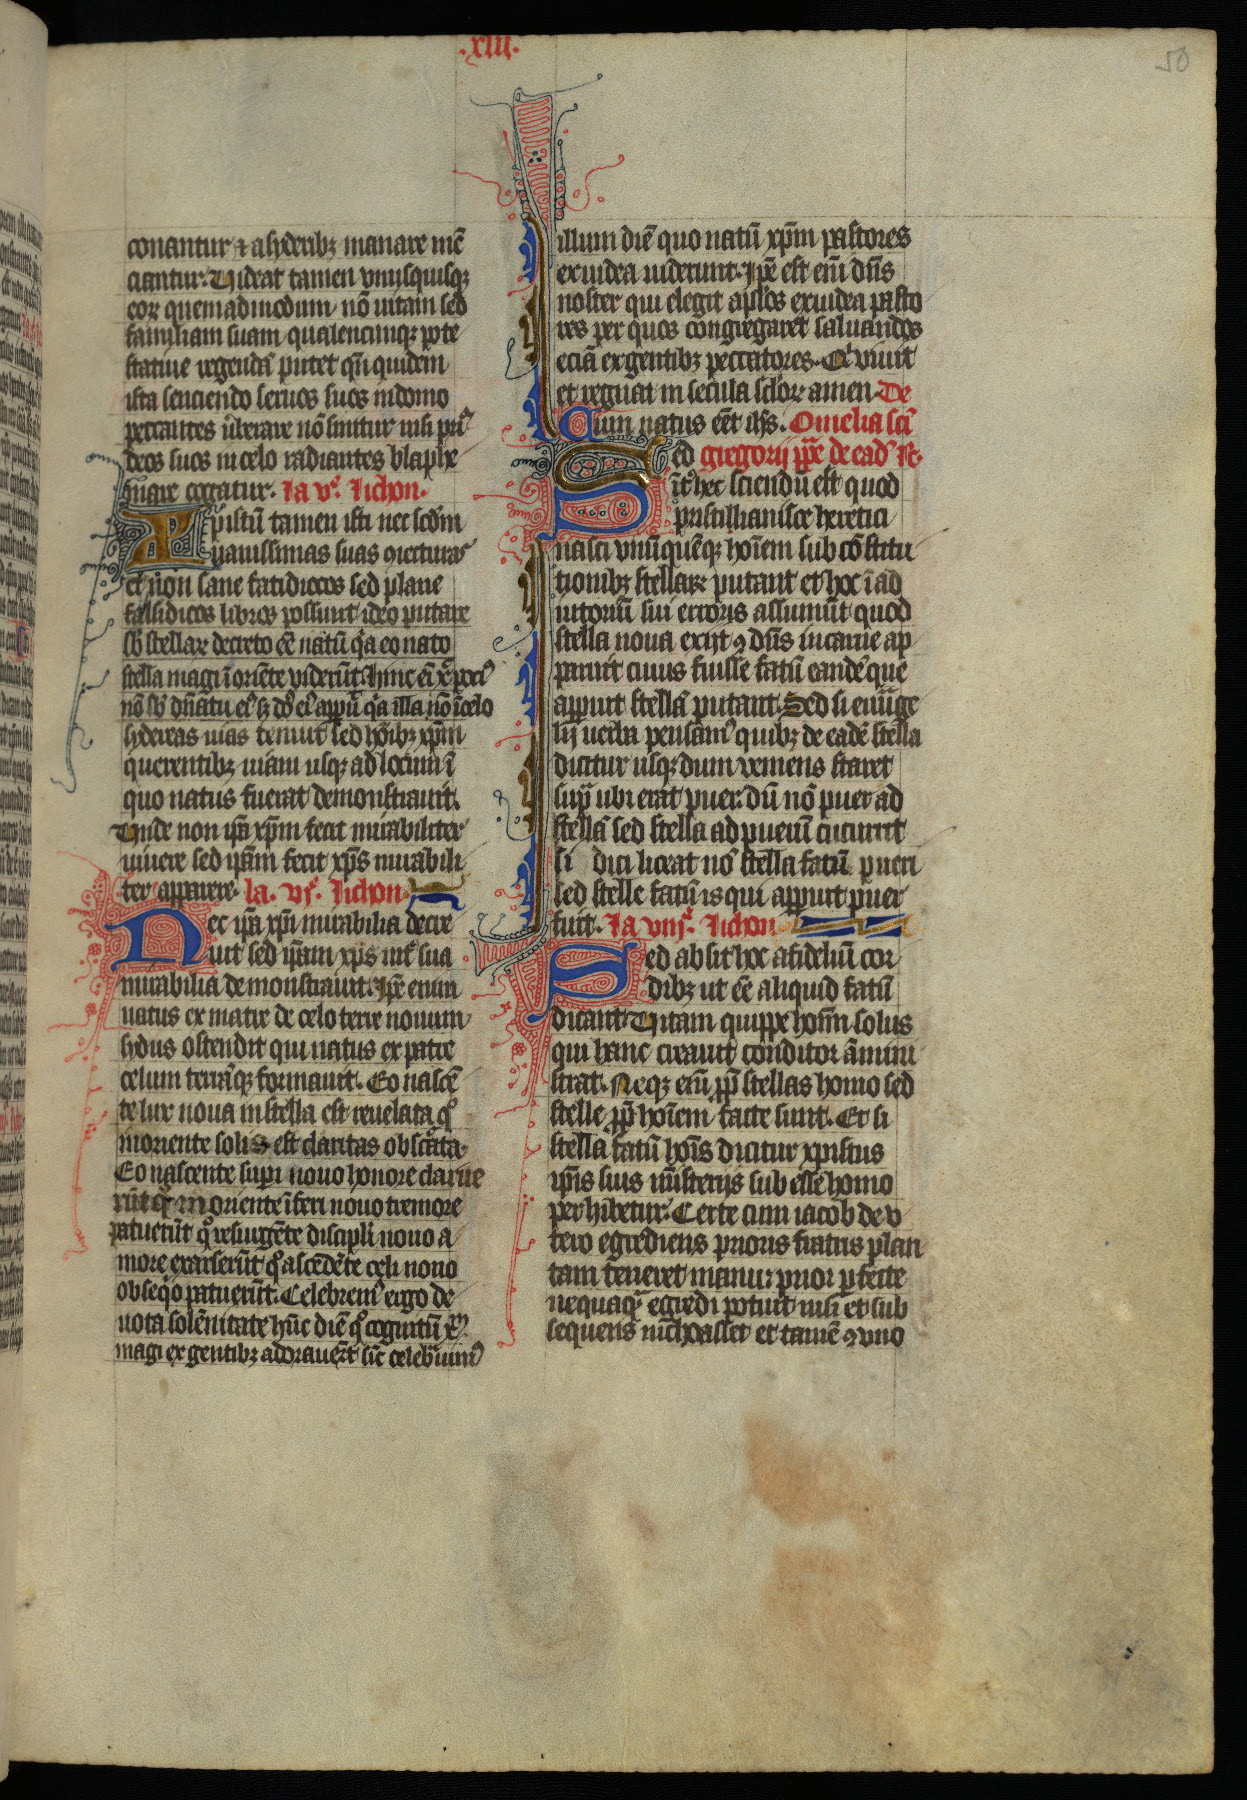 .xiii.
50
conantur ⁊ asyderibꝫ manare mẽ
ciantur. Videat tamen vnusquisqꝫ
eoꝝ quemadmodum nõ uitam sed
familiam suam qualencumqꝫ pote
statiue regendã putet qñ quidem
ista senciendo seruos suos in domo
peccantes ũberare nõ sinitur nisi priꝰ
deos suos in celo radiantes blasphe
mare cogatur. la vͤ. licħon.
Apͥstũ tamen isti nec scđm
uanissimas suas ꝯiecturas
et non sane fatidiccos sed plane
falsidicos libros possunt ideo putare
sb̵ stellaꝝ decreto eẽ natũ qͣa eo nato
stella magi ĩ oriẽte viderũt
nõ sb̵ dñatu eiꝰ sꝫ qͣa illa nõ ĩ celo
sydereas uias tenuit sed hõibꝫ xp̃m
querentibꝫ uiam usqꝫ ad locum ĩ
quo natus fuerat demonstrauit.
Vnde non ip̃a xp̃m fecit mirabiliter
uiuere sed ip̃am fecit xp̃s mirabili
ter apparere. la. vͥ. licħon
Nec ip̃a xp̃i mirabilia decre
uit sed ip̃am xp̃s int̾ sua
mirabilia demonstrauit. Ip̃e enim
natus ex matre de celo terre nouum
sydus ostendit qui natus ex patre
celum terrãqꝫ formauit. Eo nascẽ
te lux noua in stella est reuelata qͦ
moriente solis est claritas obscͬata.
Eo nascente sup̃i nouo honore clarue
rũt qͦ moriente ĩferi nouo tremore
patuerũt qͦ resurgẽte discipli nouo a
more exarserũt qͦ ascẽdẽte celi nouo
obseqͦo patuerũt. Celebremꝰ ergo de
uota solẽnitate hũc diẽ qͦ cognitũ xp̃m
magi ex gentibꝫ adorauer̃t sic̃ celebͣuimꝰ
illum diẽ quo natũ xp̃m pastores
ex iudea uiderunt. Ip̃e est em̃ dñs
noster qui elegit apl̃os ex iudea pasto
res per quos congregaret saluandos
eciã ex gentibꝫ peccatores. Qͥ viuit
et regnat in secula scl̃oꝝ amen. De
Cum natus eẽt ih̃s. Omelia scĩ
ed gregorij pp̃e de eađ
Int̾ hec sciendũ est quod
priscillianiste heretici
nasci vnũquẽqꝫ hoĩem sub cõstitu
tionibꝫ stellaꝝ putant et hoc ĩ ad
iutoriũ sui erroris assumũt quod
stella noua exijt ꝙ dñs in carne ap
paruit cuius fuisse fatũ eandẽ que
apparuit stellã putant. Sed si euñge
lij uerba pensamꝰ quibꝫ de eadẽ stella
dicitur usqꝫ dum veniens staret
supͣ ubi erat puer. dũ nõ puer ad
stellã sed stella ad puerũ cucurrit
si dici liceat nõ stella fatũ pueri
sed stelle fatũ is qui apparuit puer
fuit. la viijͣ. licħon
Sed absit hoc a fideliũ cor
dibꝫ ut eẽ aliquid fatũ
dicant. Vitam quippe hoĩm solus
qui hanc creauit conditor ãmini
strat. Neqꝫ em̃ pp̃ stellas homo sed
stelle pp̃ hoĩem facte sunt. Et si
stella fatũ hoĩs dicitur xpistus
ip̃is suis mĩsterijs sub esse homo
perhibetur. Certe cum iacob de v
tero egrediens prioris fratris plan
tam teneret manu: prior ꝑfecte
nequaqͣ egredi potuit nisi et sub
sequens inchoasset et tamẽ ꝯ vno